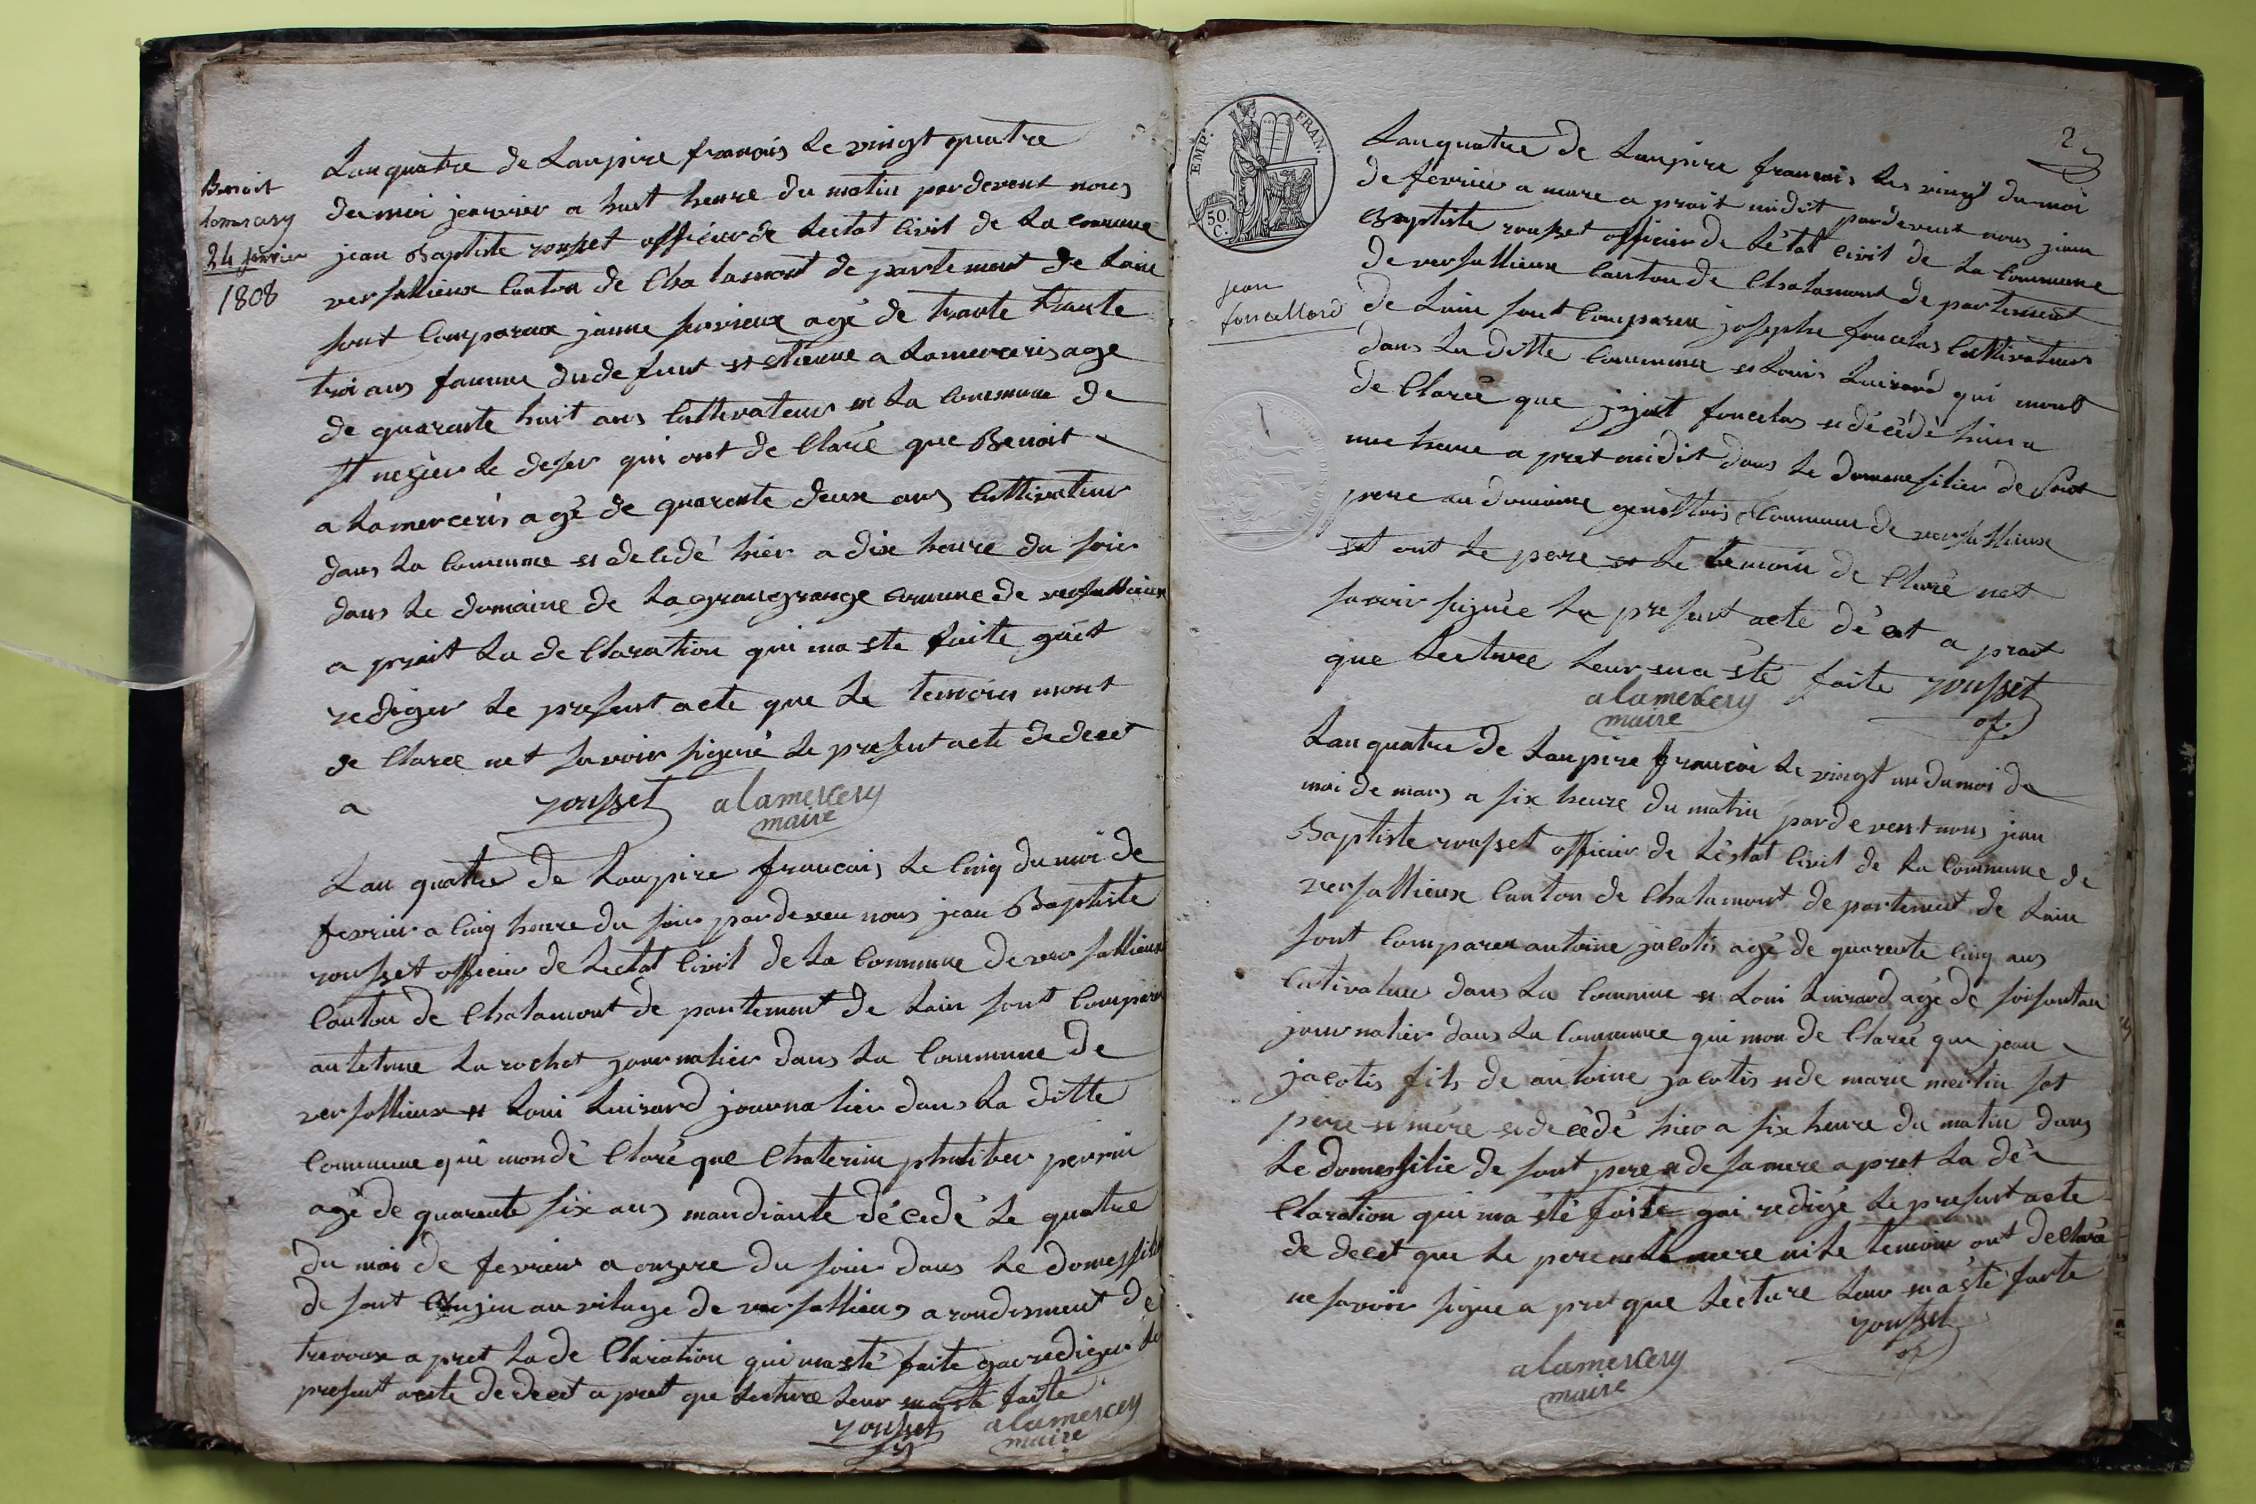 Benoit
lamercery
24 janvier
1808
Lan quatre de Lanpire francois le vingt quatre
du moi jenvier a huit heure du matin pardevent nous
jean Baptiste rousset officier de Lectat Civil de La comune
versallieux Canton de Chalamont de partement de Lain
sont Compareux janne servieux agé de trante trante
troi ans famme du defunt et etienne a Lamerceris age
de quarante huit ans Cultivateur en La Commune de
st negier Le deser qui ont de Claré que Benoit
a Lamerceris agé de quarente deux ans Cultivateur
dans La Commune et dé cedé hier a dix heure du soir
dans Le domaine de La grangrange comune de versallieux
a prait La de Claration qui ma ete faite gait
rediger Le present acte que Le temoins mont
de Claree net savoir signié Le present acte de deces
a
rousset alamercery
maire
Lan quatre de Lanpire francais Le Cinq du moi de
fevrier a Cinq heure du soir pardeven nous jean Baptiste
rousset officier de Lectat Civil de La Commune de versallieux
Canton de Chalamont de partement de Lain sont Comparu
La rochet journalier dans La Commune de
versallieux et Loui Luisard journalier dans La ditte
Commune qui mon dé Claré que Chaterine philiber perrin
agé de quarente six ans mandiante dé cedé Le quatre
du moi de fevrier a onzere du soir dans Le domessile
de sont Conjin au vilage de versallieux a rondisment de
trevoux a pret La de Claration qui ma eté faite gai rediger Le
present acte de decet a pret que Lecture Leur ma ete faite
rousset alamercery
maire
EMP. FRAN.
50.
C.
2
Lan quatre de Lanpire francais Les vingt du moi
de fevrier a nure a prait midit pardevent nous jean
Baptiste rousset officier de Létat Civil de La Commune
de versallieux Canton de Chalamont de partement
jean
foncellard
de Lain sont Comparen josephe foncelas Cultivateur
dans La ditte Commune et Louis Luisard qui mont
de Claréé que foncelas et décédé hier a
une heure a pret midit dans Le domessilier de sont
pere au domaine Commune de versallieux
et ont Le pere et Le temoin de Claré net
savoir signée La present acte dé cet a prait
que Lecture Leur ma ete faite rousset
alamercery of.
maire
Lan quatre de Lanpire francoi Le vingt un du moi de
moi de mars a six heure du matin pardevent nous jean
Baptiste rousset officier de Léstat Civil de La Commune de
versallieux Canton de Chalamont de partement de Lain
sont Comparen antoine jacotis agé de quarente Cinq ans
Cutivateur dans La Commune et Loui Luisard agé de soisontan
journalier dans La Commune qui mon de Claré que jean
jacotis fils de antoine jacotis et de marie merlin sot
pere et mere et de cédé hier a six heure du matin dans
Le domessilie de sont pere et de sa mere a pret La dé
Claration qui ma été faite gai redigé Le present acte
de decet que Le pere ni La mere ni Le temoin ont declaré
ne savoir signe a pret que Lécture Leur ma été faite
rousset
of
alamercery
maire